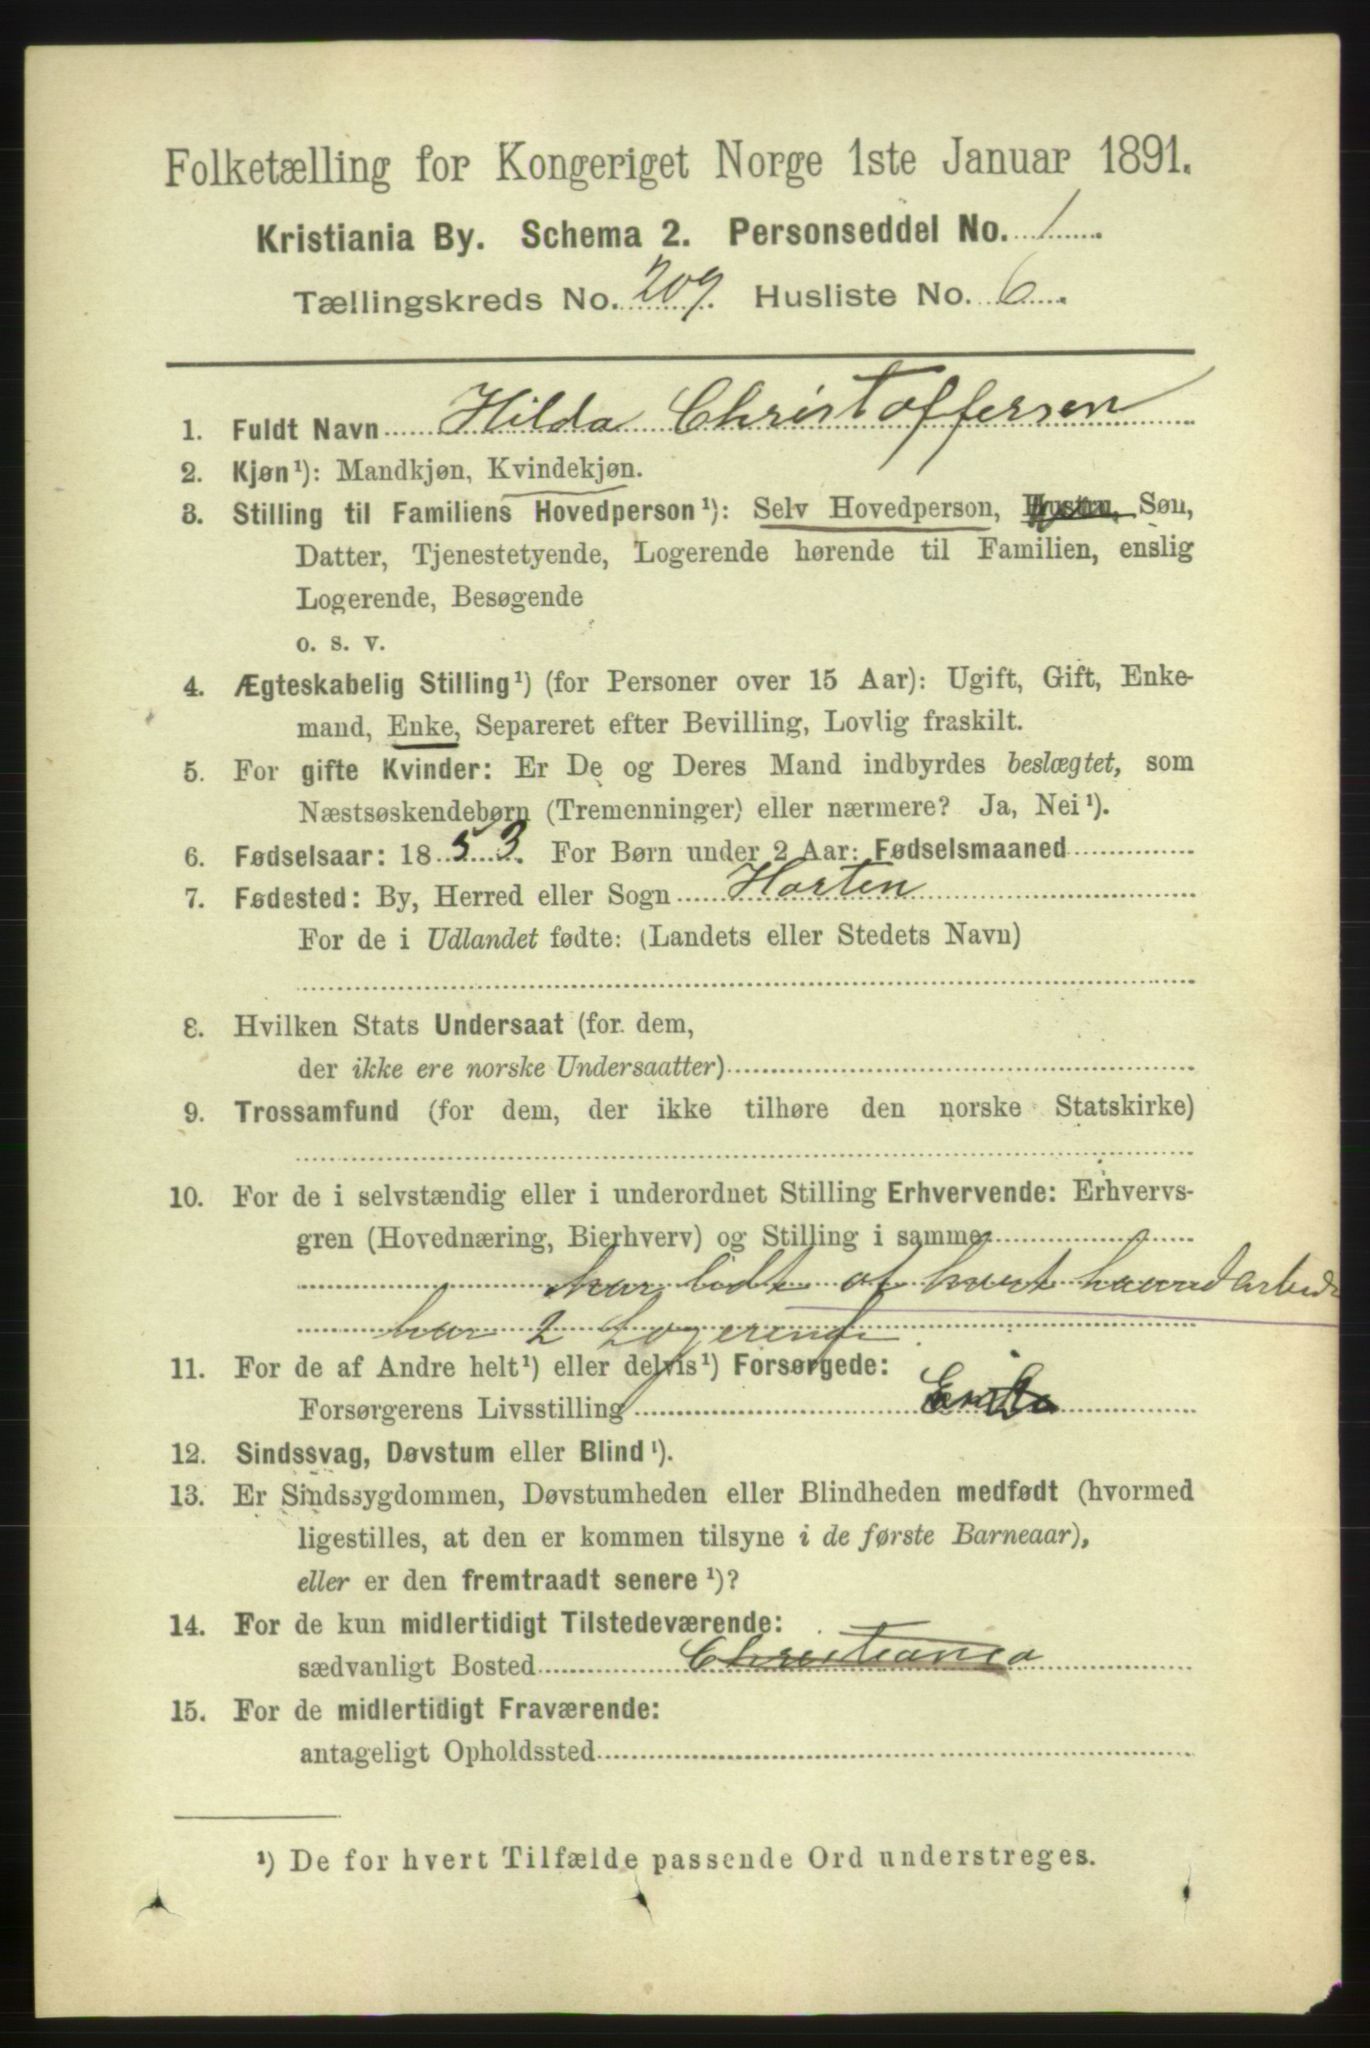 Folketælling for Kongeriget Norge 1ste Januar 1891.
Kristiania By. Schema 2. Personseddel No. 1
Tællingskreds No. 209. Husliste No. 6
1. Fuldt Navn Hilda Christoffersen
2. Kjøn¹): Mandkjøn, Kvindekjøn.
3. Stilling til Familiens Hovedperson¹): Selv Hovedperson, Hustru, Søn,
Datter, Tjenestetyende, Logerende hørende til Familien, enslig
Logerende, Besøgende
o. s. v.
4. Ægteskabelig Stilling¹) (for Personer over 15 Aar): Ugift, Gift, Enke-
mand, Enke, Separeret efter Bevilling, Lovlig fraskilt.
5. For gifte Kvinder: Er De og Deres Mand indbyrdes beslægtet, som
Næstsøskendebørn (Tremenninger) eller nærmere? Ja, Nei¹).
6. Fødselsaar: 1853. For Børn under 2 Aar: Fødselsmaaned
7. Fødested: By, Herred eller Sogn Horten
For de i Udlandet fødte: (Landets eller Stedets Navn)
8. Hvilken Stats Undersaat (for dem,
der ikke ere norske Undersaatter)
9. Trossamfund (for dem, der ikke tilhøre den norske Statskirke)
10. For de i selvstændig eller i underordnet Stilling Erhvervende: Erhvervs-
gren (Hovednæring, Bierhverv) og Stilling i samme
har lidt af hvert haandarbeide
har 2 Logerende
11. For de af Andre helt¹) eller delvis¹) Forsørgede:
Forsørgerens Livsstilling
12. Sindssvag, Døvstum eller Blind¹).
13. Er Sindssygdommen, Døvstumheden eller Blindheden medfødt (hvormed
ligestilles, at den er kommen tilsyne i de første Barneaar),
eller er den fremtraadt senere¹)?
14. For de kun midlertidigt Tilstedeværende:
sædvanligt Bosted Christiania
15. For de midlertidigt Fraværende:
antageligt Opholdssted
¹) De for hvert Tilfælde passende Ord understreges.